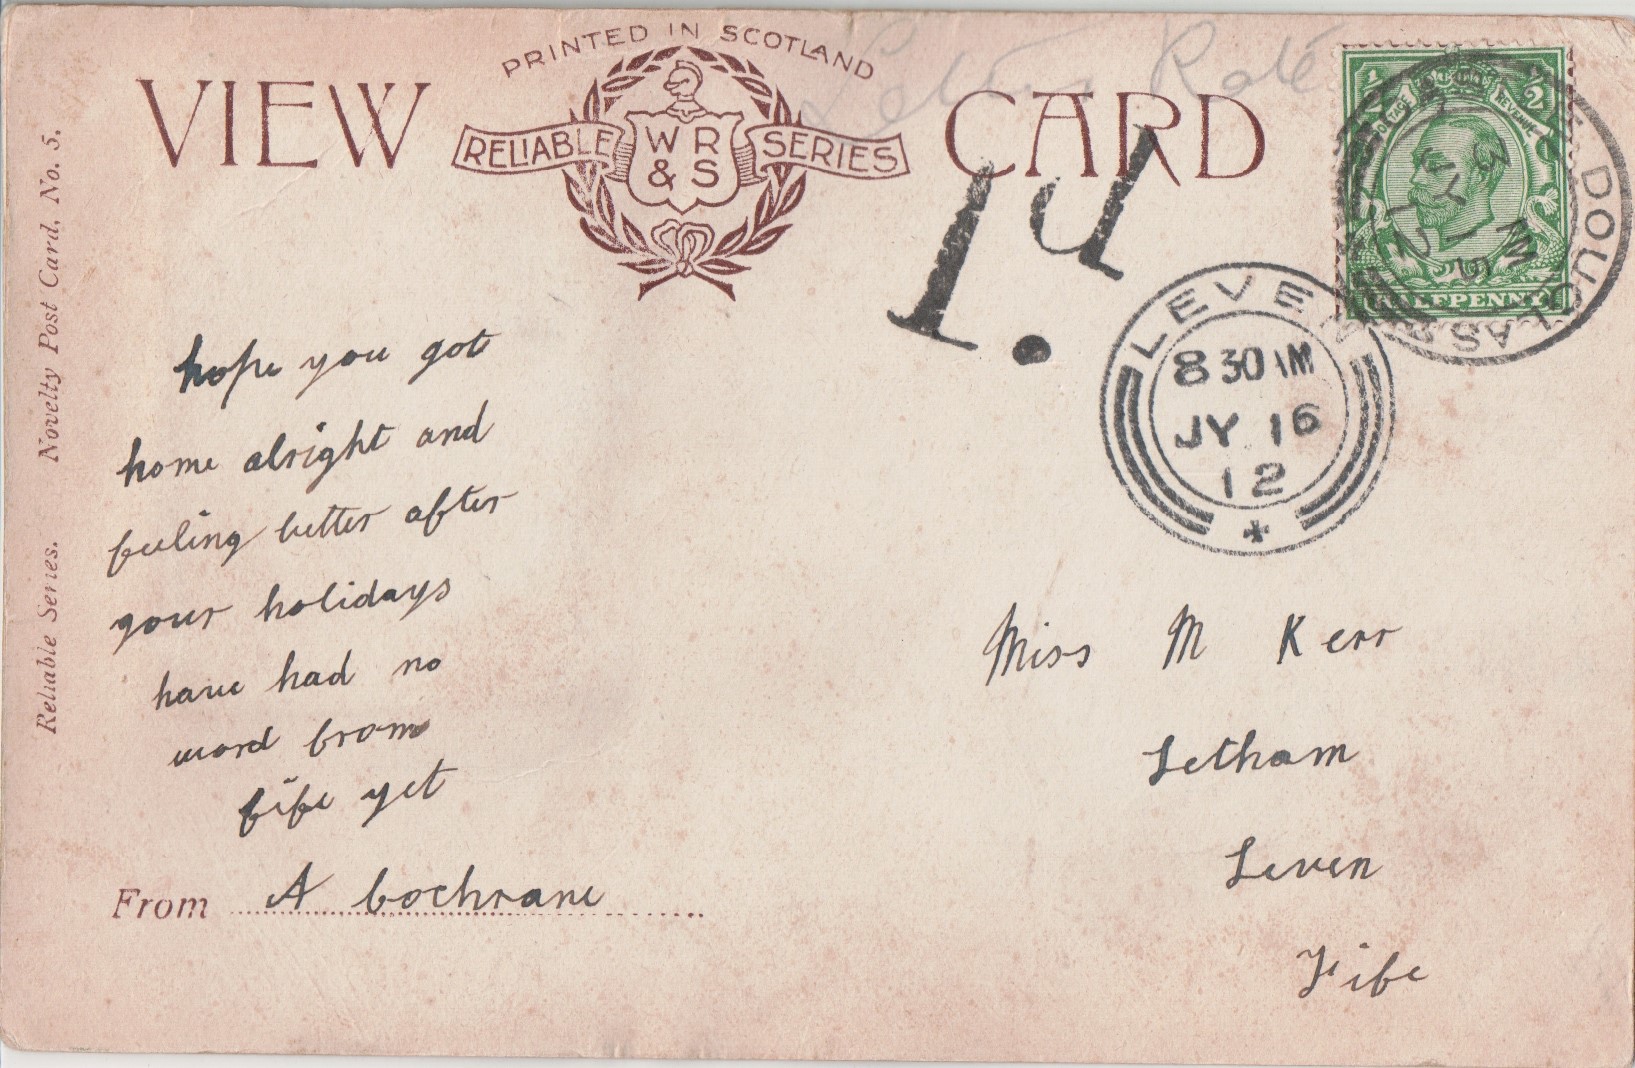 PRINTED IN SCOTLAND
VIEW CARD
RELIABLE SERIES
W R
& S
Letter Rate
1d.
1/2 1/2
POSTAGE REVENUE
HALFPENNY
DOUGLAS
3 15 PM
JY 15
12
LEVEN
8 30 AM
JY 16
12
Reliable Series. Novelty Post Card, No. 5.
hope you got
home alright and
feeling better after
your holidays
have had no
word from
fife yet
From A Cochrane
Miss M Kerr
Letham
Leven
Fife